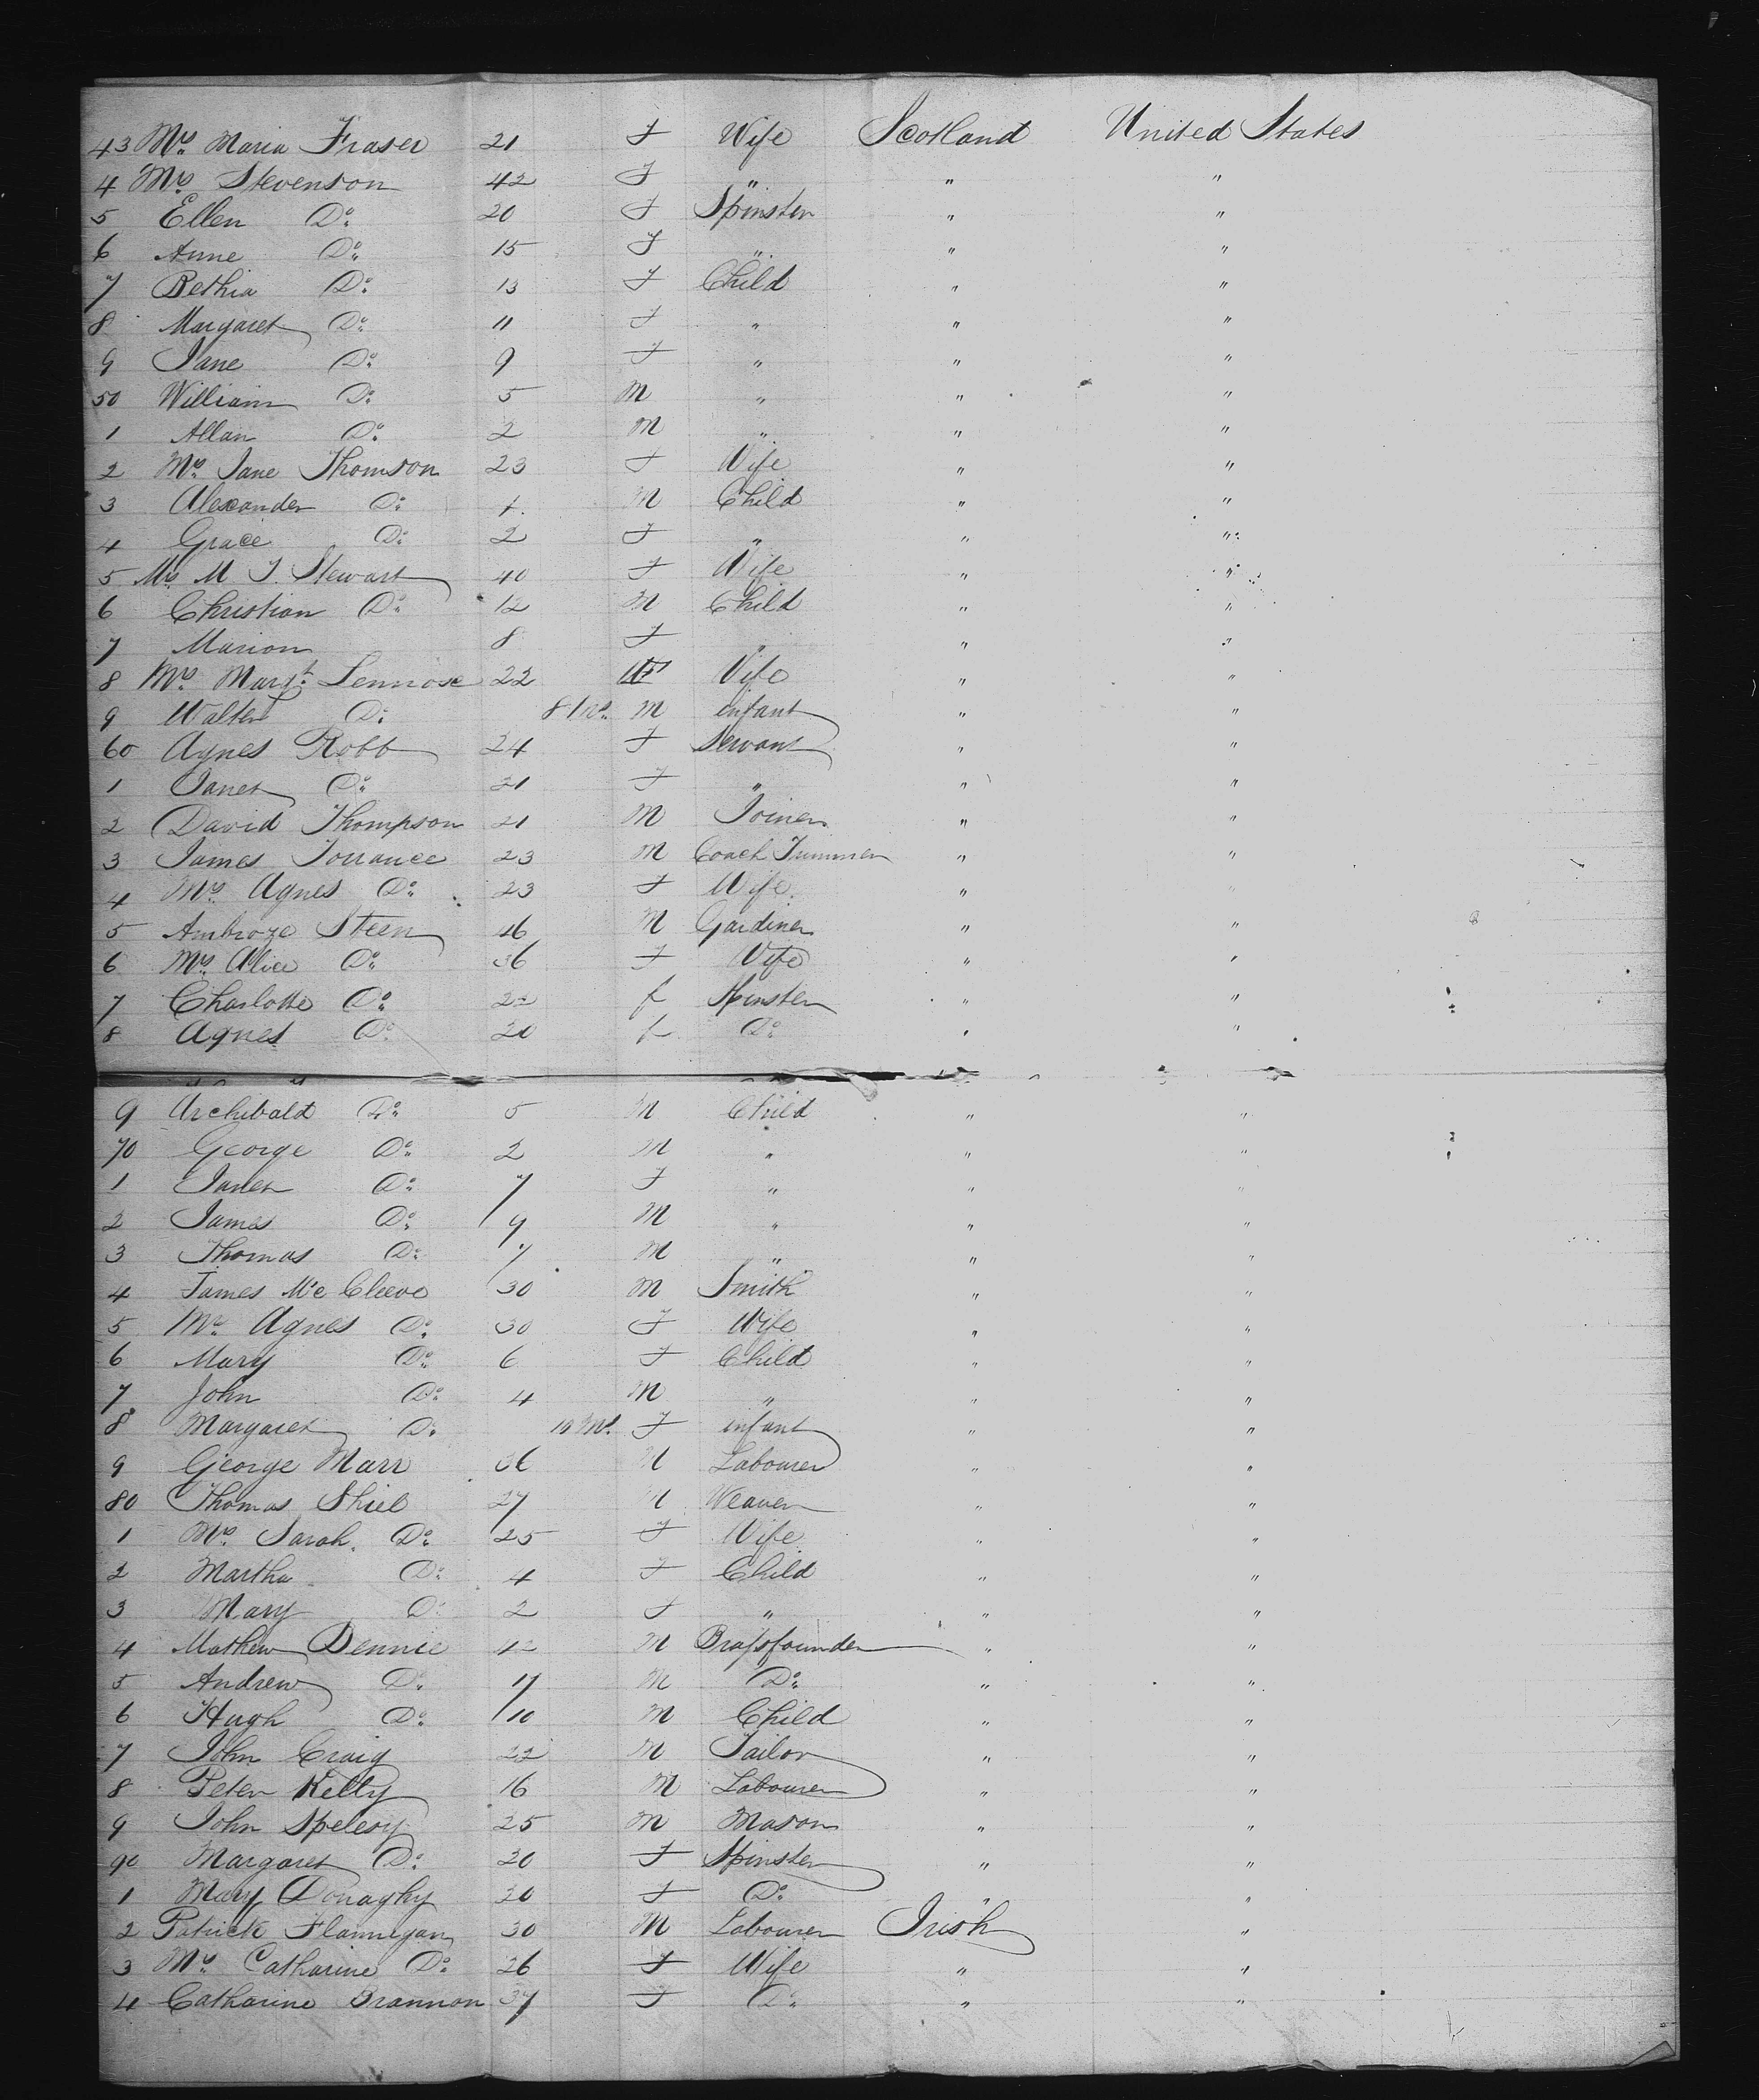 43 Mrs. Maria Fraser 21 F Wife Scotland United States
4 Mrs. Stevenson 42 F " " "
5 Ellen Do. 20 F Spinster " "
6 Anne Do. 15 F " " "
7 Bethia Do. 13 F Child " "
8 Margaret Do. 11 F " " "
9 Jane Do. 9 F " " "
50 William Do. 5 M " " "
1 Allan Do. 2 M " " "
2 Mrs. Jane Thomson 23 F Wife " "
3 Alexander Do. M Child " "
4 Grace Do. 2 F " " "
5 Mrs. M J. Stewart 40 F Wife " "
6 Christian Do. 12 M Child " "
7 Marion 8 F " " "
8 Mrs. Margt. Lennox 22 F Wife " "
9 Walter Do. 8 Mo. M infant " "
60 Agnes Robb 24 F Servant " "
1 Janet Do. 21 F " " "
2 David Thompson 21 M Joiner " "
3 James Torrance 23 M Coach Trimmer " "
4 Mrs. Agnes Do. 23 F Wife " "
5 Ambroze Steen 46 M Gardiner " "
6 Mrs. Alice Do. 36 F Wife " "
7 Charlotte Do. 22 f Spinster " "
8 Agnes Do. 20 f Do. " "
9 Archibald Do. 5 M Child " "
70 George Do. 2 M " " "
1 Janet Do. 7 F " " "
2 James Do. 9 M " " "
3 Thomas Do. 7 M " " "
4 James Mc Cleeve 30 M Smith " "
5 Mrs. Agnes Do. 30 F Wife " "
6 Mary Do. 6 F Child " "
7 John Do. 4 M " " "
8 Margaret Do. 10 Mo. F infant " "
9 George Marr 36 M Labourer " "
80 Thomas Shiel 27 M Weaver " "
1 Mrs. Sarah Do. 25 F Wife " "
2 Martha Do. 4 F Child " "
3 Mary Do. 2 F " " "
4 Mathew Dennie 42 M Brassfounder " "
5 Andrew Do. 17 M Do. " "
6 Hugh Do. 10 M Child " "
7 John Craig 22 M Tailor " "
8 Peter Kelly 16 M Labourer " "
9 John Spelesy 25 M Mason " "
90 Margaret Do. 20 F Spinster " "
1 Mary Donaghy 20 F Do. " "
2 Patrick Flannegan 30 M Labourer Irish "
3 Mrs. Catharine Do. 26 F Wife " "
4 Catharine Brannon 37 F Do. " "